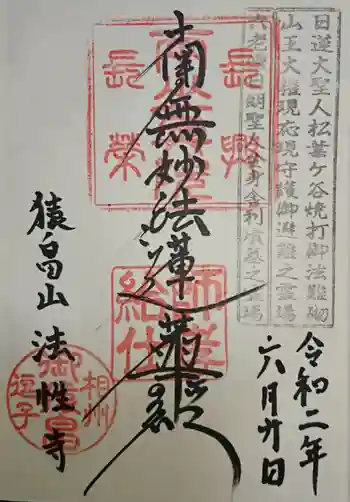 日蓮大聖人松葉ケ谷焼打御法難砌
山王大権現応現守護御避難之霊場
六老僧日朗聖人御身舎利墳墓之霊場
令和二年
六月廿日
長興
長榮
南無妙法蓮華経
師孝
給仕
猿畠山 法性寺
相州
御猿畠
逗子